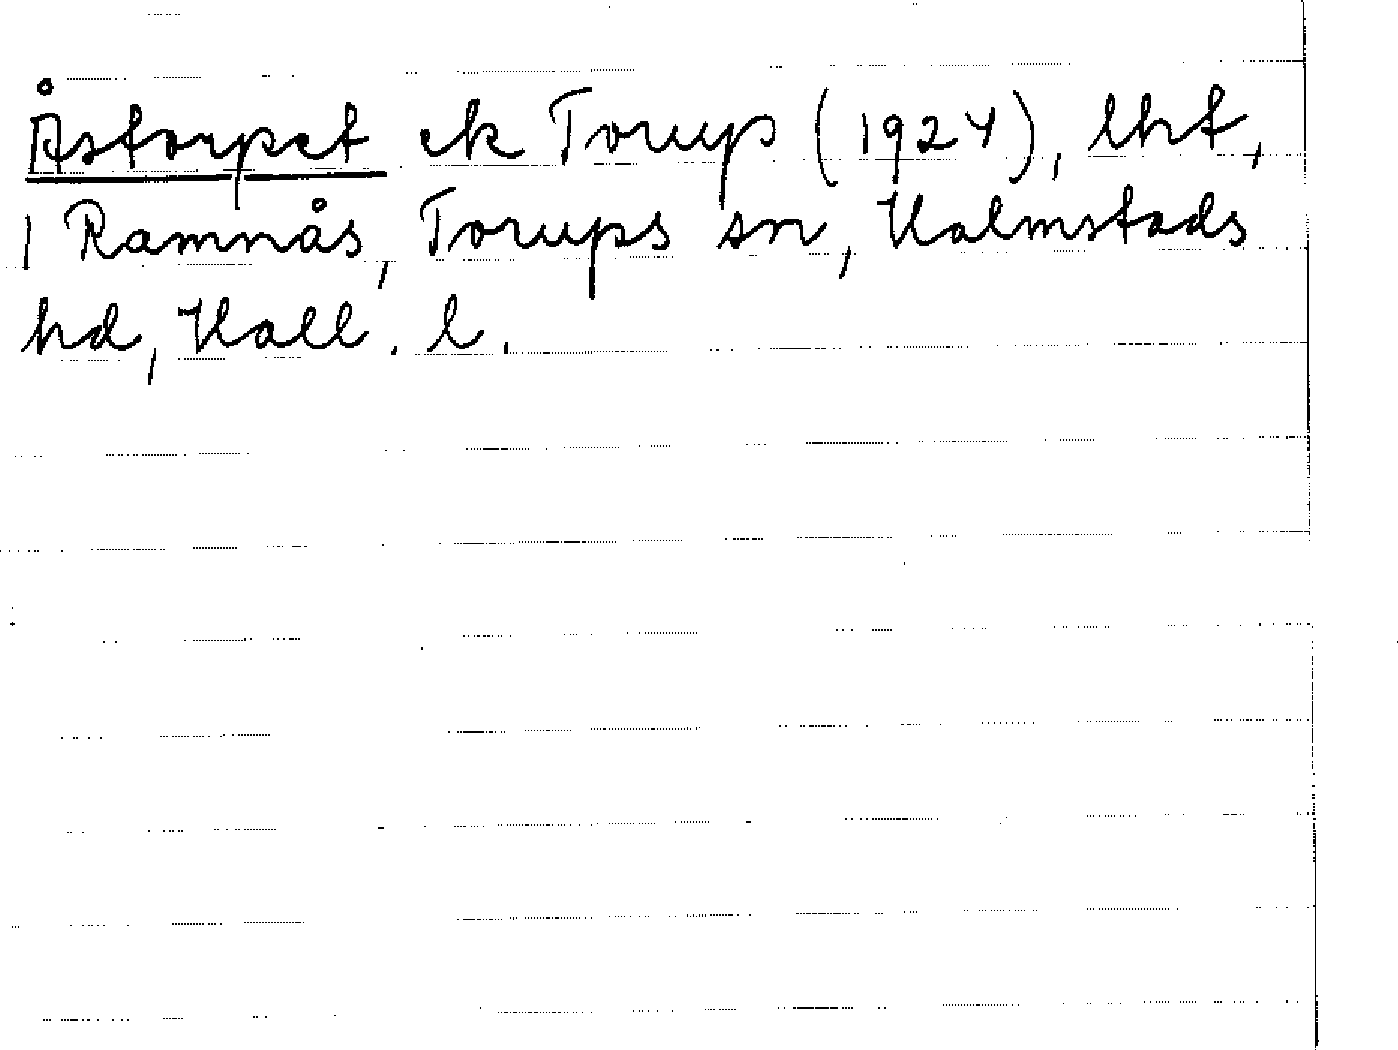 Åstorpet ek Torup (1924), lht,
1 Ramnås, Torups sn, Halmstads
hd, Hall. l.